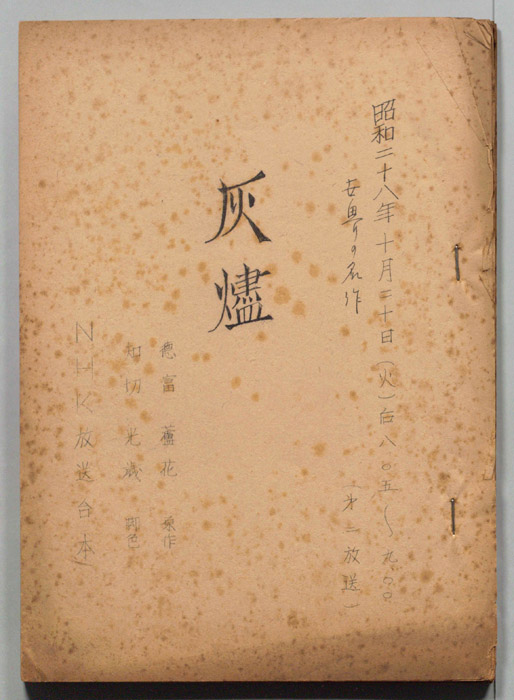 昭和二十八年十月二十日(火)后八.〇五〜九.〇〇
世界の名作
(第二放送)
灰燼
徳富蘆花 原作
知切光歳 脚色
NHK放送台本